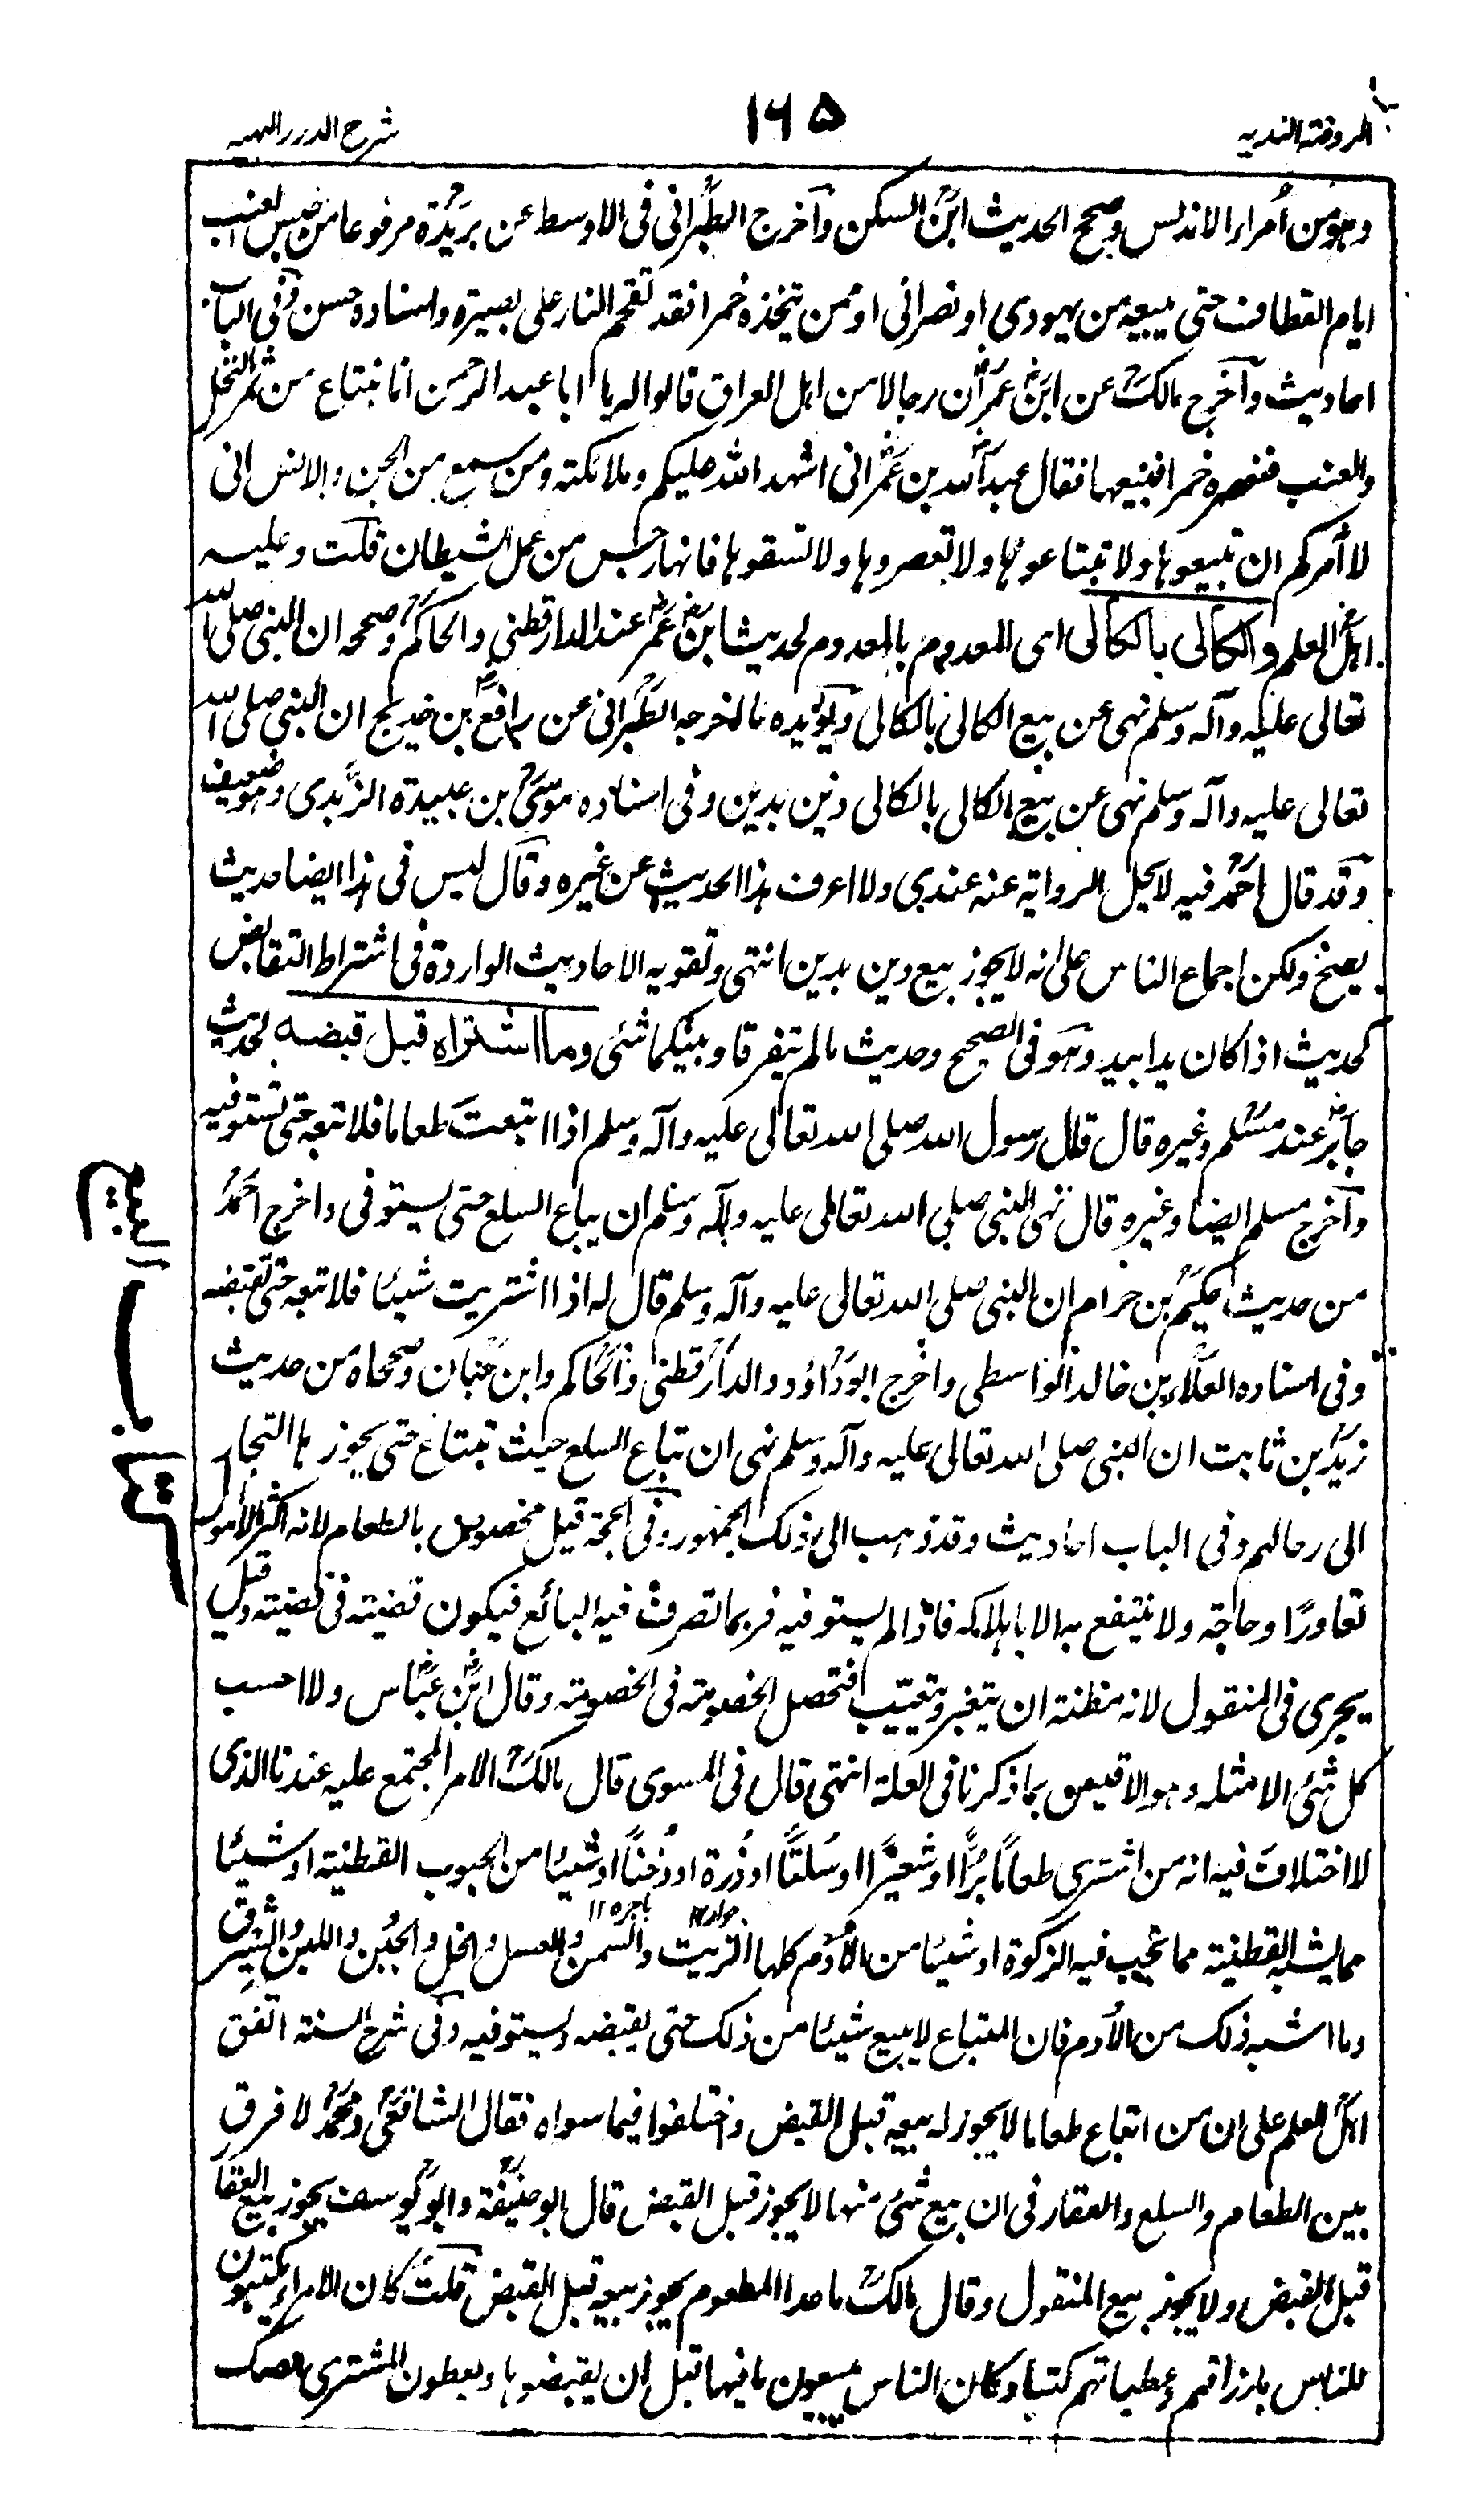 الروضة الندیه ۱۶۵ شرح الدرر البهیه
وهو من أمراء الاندلس وصحح الحدیث ابن السكن وأخرج الطبرانی فی الاوسط عن بریدة مرفوعا من حبس العنب
ایام القطاف حتی یبیعه من یهودی او نصرانی او ممن یتخذه خمرا فقد تقحم النار علی بصیرة واسناده حسن وفی الباب
احادیث وأخرج مالك عن ابن عمر أن رجالا من اهل العراق قالوا له یا ابا عبد الرحمن انا نبتاع من ثمر النخل
والعنب فنعصره خمرا فنبیعها فقال عبد الله بن عمر انی اشهد الله علیكم وملائكته ومن سمع من الجن والانس انی
لا أمركم ان تبیعوها ولا تبتاعوها ولا تعصروها ولا تسقوها فانها رجس من عمل الشیطان قلت وعلیه
اهل العلم والكالی بالكالی ای المعدوم بالمعدوم لحدیث ابن عمر عند الدارقطنی والحاكم وصححه ان النبی صلی الله
تعالی علیه وآله وسلم نهی عن بیع الكالی بالكالی ویؤیده ما اخرجه الطبرانی عن رافع بن خدیج ان النبی صلی الله
تعالی علیه وآله وسلم نهی عن بیع الكالی بالكالی دین بدین وفی اسناده موسی بن عبیدة الزبدی وهو ضعیف
وقد قال احمد فیه لا یحل الروایة عنه عندی ولا اعرف هذا الحدیث عن غیره وقال لیس فی هذا ایضا حدیث
یصح ولكن اجماع الناس علی انه لا یجوز بیع دین بدین انتهی وتقویه الاحادیث الواردة فی اشتراط التقابض
كحدیث اذا كان یدا بید وهو فی الصحیح وحدیث ما لم یتفرقا وبینكما شئ وما اشتراه قبل قبضه لحدیث
جابر عند مسلم وغیره قال قال رسول الله صلی الله تعالی علیه وآله وسلم اذا ابتعت طعاما فلا تبعه حتی تستوفیه
وأخرج مسلم ایضا وغیره قال نهی النبی صلی الله تعالی علیه وآله وسلم ان یباع السلع حتی یستوفی واخرج احمد
من حدیث حكیم بن حزام ان النبی صلی الله تعالی علیه وآله وسلم قال له اذا اشتریت شیئا فلا تبعه حتی تقبضه
وفی اسناده العلاء بن خالد الواسطی واخرج ابوداؤد والدارقطنی والحاكم وابن حبان وصححاه من حدیث
زید بن ثابت ان النبی صلی الله تعالی علیه وآله وسلم نهی ان تباع السلع حیث تبتاع حتی یحوزها التجار
الی رحالهم وفی الباب احادیث وقد ذهب الی ذلك الجمهور وفی الحجة قیل مخصوص بالطعام لانه اكثر الأموال
تعاورًا وحاجة ولا ینتفع به الا باهلاكه فاذا لم یستوفیه فربما تصرف فیه البائع فیكون قضیة فی قضیة وقیل
یجری فی المنقول لانه مظنة ان یتغیر ویتعیّب فتحصل الخصومة فی الخصومة وقال ابن عباس ولا احسب
كل شئ الا مثله وهو الاقیس بما ذكرنا فی العلة انتهی قال فی المسوی قال مالك الامر المجتمع علیه عندنا الذی
لا اختلاف فیه انه من اشتری طعاماً برًّا او شعیرًا او سُلتًا او ذُرة او دُخنًا او شیئا من الحبوب القطنیة او شیئا
مما یشبه القطنیة مما تجب فیه الزكوة او شیئا من الأدم كلها الزیت والسمن والعسل والخل والجبن واللبن والشیرق
وما اشبه ذلك من الأدم فان المبتاع لا یبیع شیئا من ذلك حتی یقبضه ویستوفیه وفی شرح السنة اتفق
اهل العلم علی ان من ابتاع طعاما لا یجوز له بیعه قبل القبض واختلفوا فیما سواه فقال الشافعی ومحمد لا فرق
بین الطعام والسلع والعقار فی ان بیع شئ منها لا یجوز قبل القبض قال ابو حنیفة وابو یوسف یجوز بیع العقار
قبل القبض ولا یجوز بیع المنقول وقال مالك ما عدا المطعوم یجوز بیعه قبل القبض قلت كان الامراء یكتبون
للناس بارزاقهم وعطیاتهم كتبا وكان الناس یبیعون ما فیها قبل ان یقبضوها ویعطون المشتری الصك